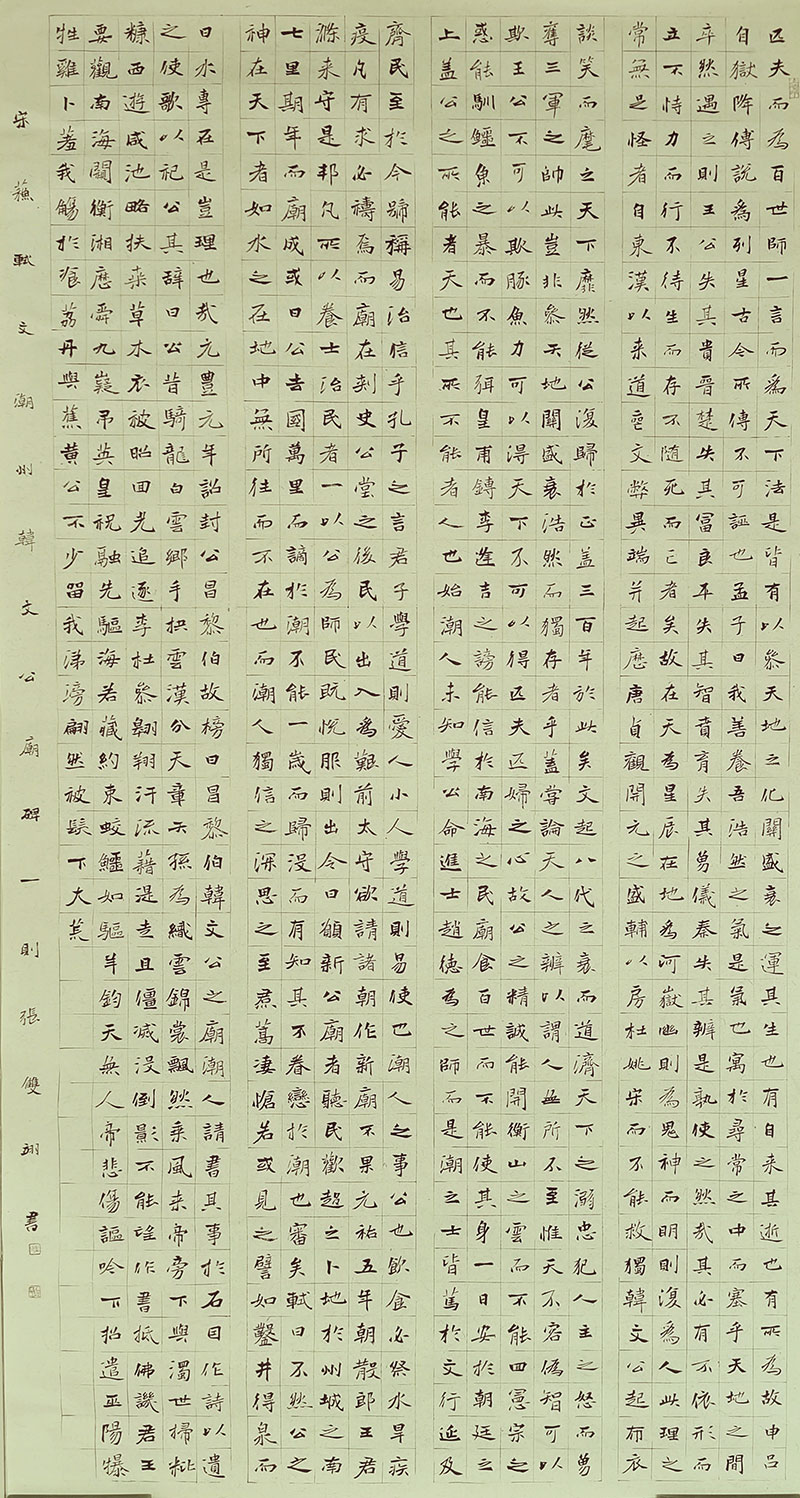 匹夫而為百世師一言而為天下法是皆有以參天地之化關盛衰之運其生也有自来其逝也有所為故申呂
自獄降傅說為列星古今所傳不可誣也孟子曰我善養吾浩然之氣是氣也寓於尋常之中而塞乎天地之間
卒然遇之則王公失其貴晉楚失其富良平失其智賁育失其勇儀秦失其辨是孰使之然哉其必有不依形而
立不恃力而行不待生而存不随死而亡者矣故在天為星辰在地為河嶽幽則為鬼神而明則復為人此理之
常無足怪者自東漢以来道喪文弊異端并起歷唐貞觀開元之盛輔以房杜姚宋而不能救獨韓文公起布衣
談笑而麾之天下靡然從公復歸於正蓋三百年於此矣文起八代之衰而道濟天下之溺忠犯人主之怒而勇
奪三軍之帥此豈非參天地關盛衰浩然而獨存者乎蓋嘗論天人之辨以謂人無所不至惟天不容偽智可以
欺王公不可以欺豚魚力可以得天下不可以得匹夫匹婦之心故公之精誠能開衡山之雲而不能回憲宗之
惑能馴鱷魚之暴而不能弭皇甫鎛李逢吉之謗能信於南海之民廟食百世而不能使其身一日安於朝廷之
上蓋公之所能者天也其所不能者人也始潮人未知學公命進士趙德為之師而是潮之士皆篤於文行延及
齊民至於今號稱易治信乎孔子之言君子學道則愛人小人學道則易使也潮人之事公也飲食必祭水旱疾
疫凡有求必禱焉而廟在刺史公堂之後民以出入為艱前太守欲請諸朝作新廟不果元祐五年朝散郎王君
滌来守是邦凡所以養士治民者一以公為師民既悅服則出令曰願新公廟者聽民歡趨之卜地於州城之南
七里期年而廟成或曰公去國萬里而謫於潮不能一歲而歸沒而有知其不眷戀於潮也審矣軾曰不然公之
神在天下者如水之在地中無所往而不在也而潮人獨信之深思之至焄蒿凄愴若或見之譬如鑿井得泉而
曰水專在是豈理也哉元豐元年詔封公昌黎伯故榜曰昌黎伯韓文公之廟潮人請書其事於石因作詩以遺
之使歌以祀公其辭曰公昔騎龍白雲鄉手抉雲漢分天章天孫為織雲錦裳飄然乘風来帝旁下與濁世掃秕
糠西遊咸池略扶桑草木衣被昭回光追逐李杜參翱翔汗流籍湜走且僵滅沒倒影不能望作書抵佛譏君王
要觀南海闚衡湘歷舜九嶷吊英皇祝融先驅海若藏約束蛟鱷如驅羊鈞天無人帝悲傷謳吟下招遣巫陽犦
牲雞卜羞我觴於粲荔丹與蕉黃公不少留我涕滂翩然被髮下大荒
宋蘇軾文潮州韓文公廟碑一則張雙書